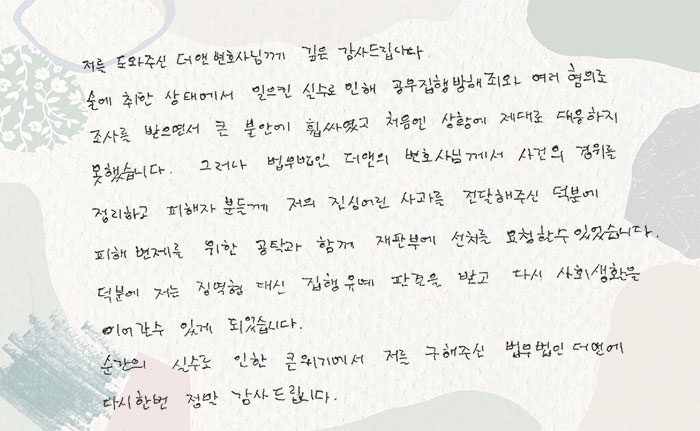 저를 도와주신 더앤 변호사님께 깊은 감사드립니다.
술에 취한 상태에서 일으킨 실수로 인해 공무집행방해죄와 여러 혐의로
조사를 받으면서 큰 불안에 휩싸였고 처음엔 상황에 제대로 대응하지
못했습니다. 그러나 법무법인 더앤의 변호사님께서 사건의 경위를
정리하고 피해자분들께 저의 진심어린 사과를 전달해주신 덕분에
피해 변제를 위한 공탁과 함께 재판부에 선처를 요청할수있었습니다.
덕분에 저는 징역형 대신 집행유예 판결을 받고 다시 사회생활을
이어갈수 있게 되었습니다.
순간의 실수로 인한 큰위기에서 저를 구해주신 법무법인 더앤에
다시한번 정말 감사드립니다.